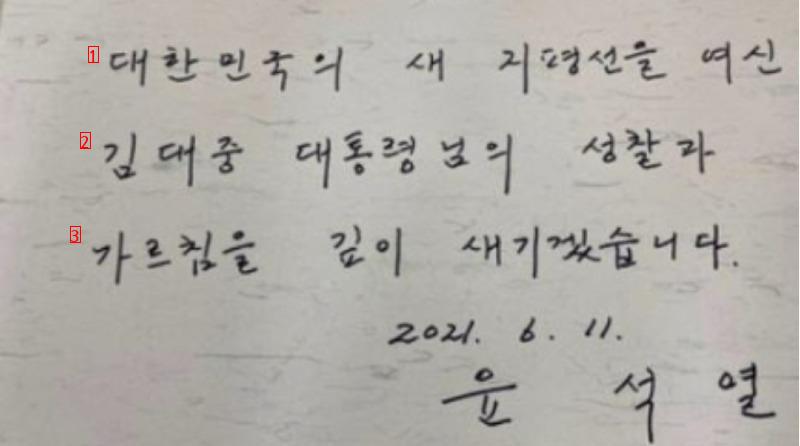 1 대한민국의 새 지평선을 여신
2 김대중 대통령님의 성찰과
3 가르침을 깊이 새기겠습니다.
2021. 6. 11.
윤 석 열